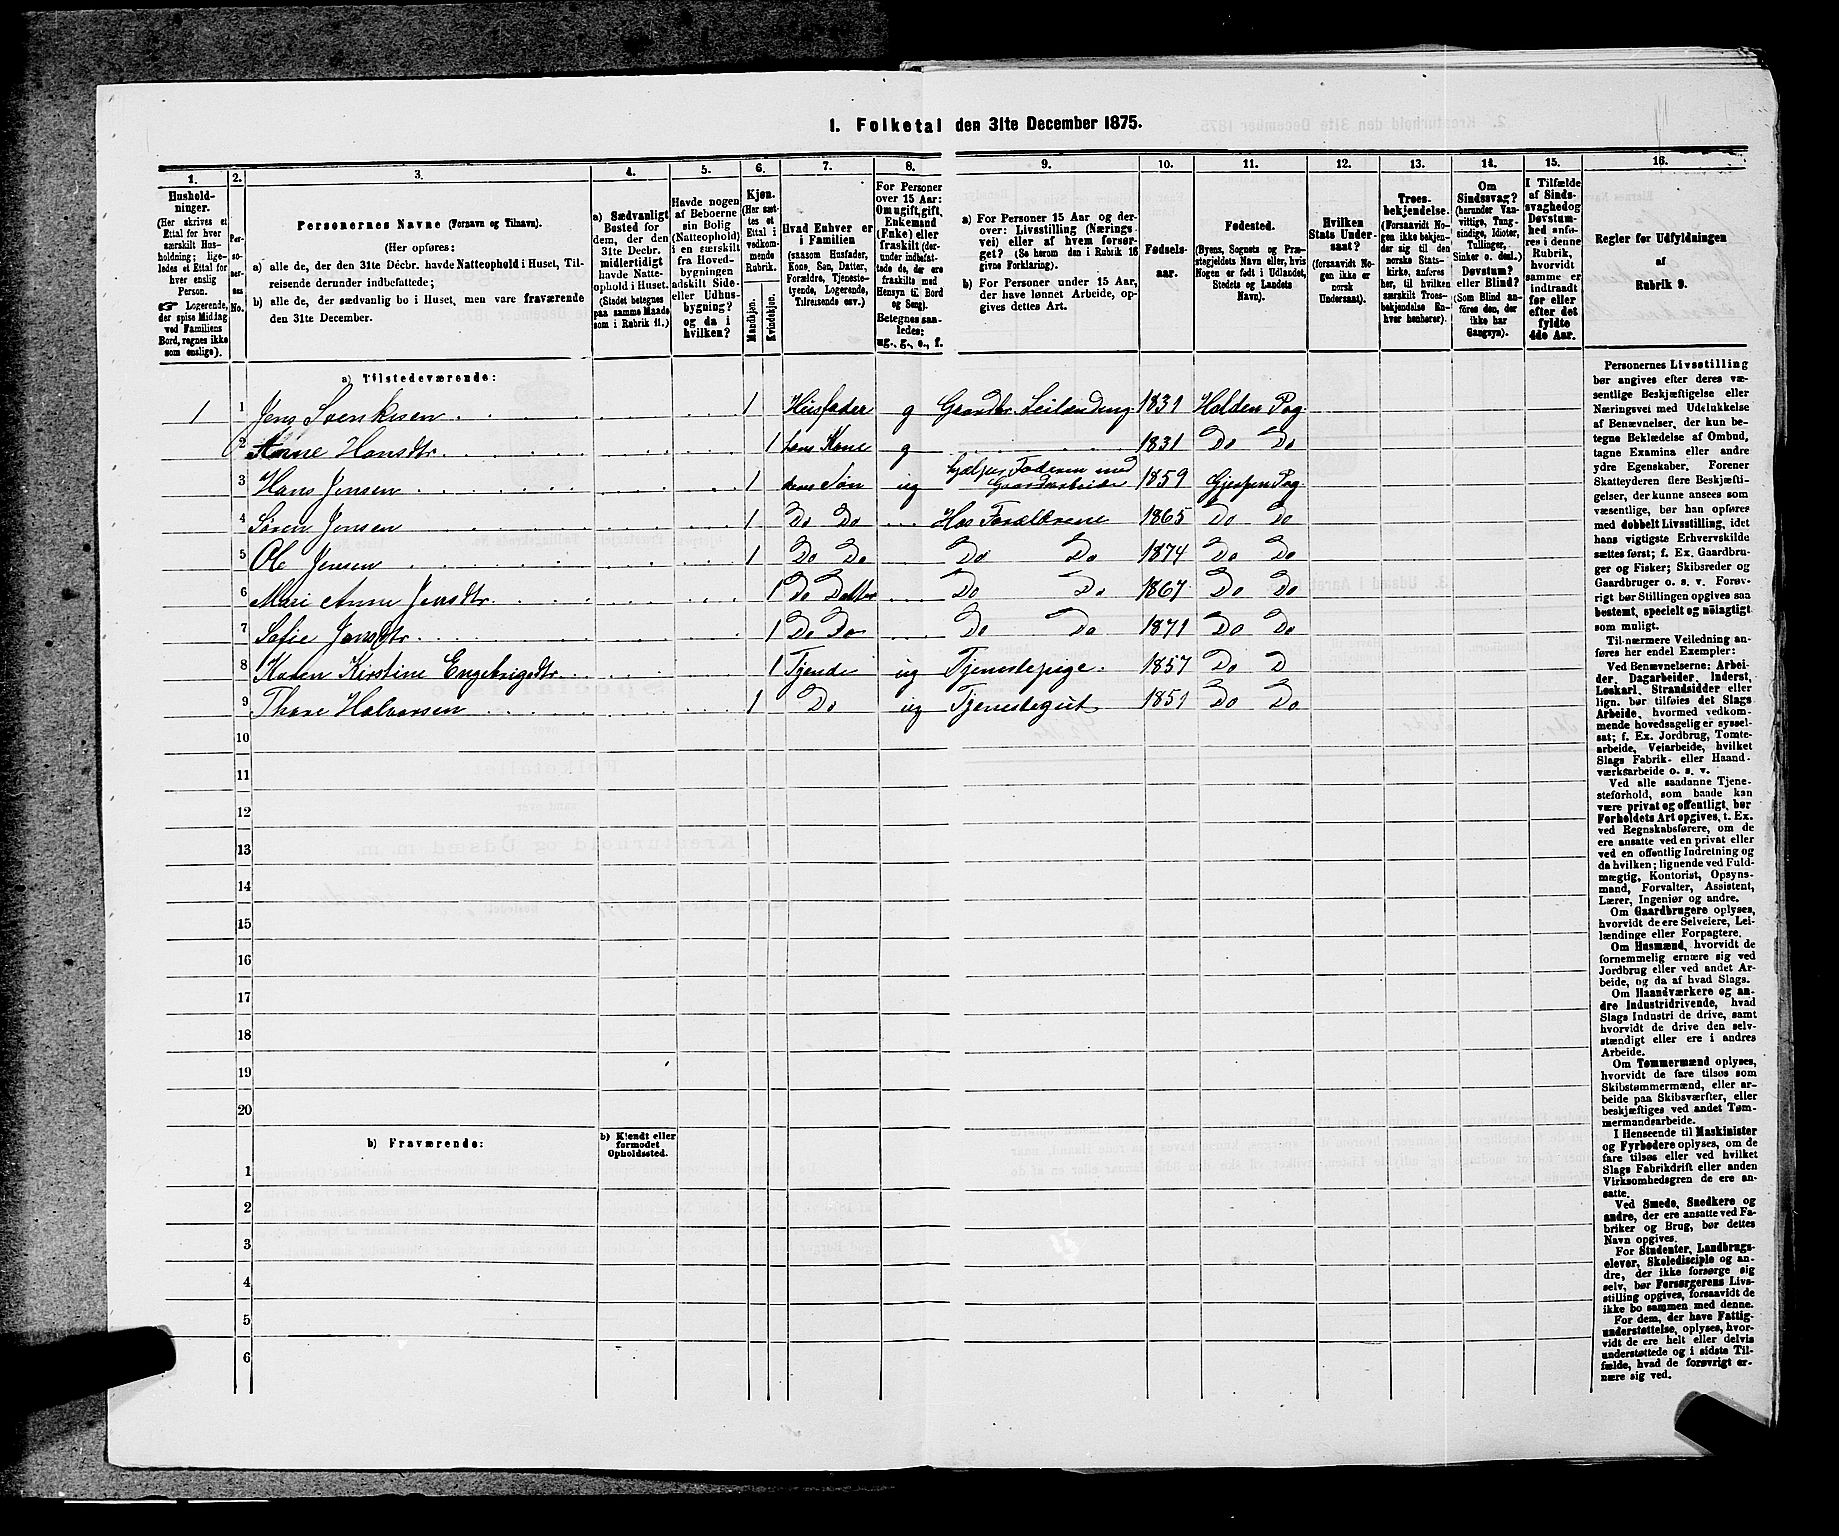 1. Folketal den 31te December 1875.
1.
2.
3.
4.
5.
6.
7.
8.
9.
10.
11.
12.
13.
14.
15.
16.
Husholdninger.
(Her skrives et
Ettal for hver
særskilt Husholdning; ligeledes
et Ettal for
hver enslig
Person.
☞ Logerende,
der spise Middag
ved Familiens
Bord, regnes ikke
som enslige).
Personernes
No.
Personernes Navne (Fornavn og Tilnavn).
(Her opføres:
a) alle de, der den 31te Decbr. havde Natteophold i Huset, Tilreisende
derunder indbefattede;
b) alle de, der sædvanlig bo i Huset, men vare fraværende
den 31te December.
a) Sædvanligt
Bosted for
dem, der den
31te Decbr.
midlertidigt
havde Natteophold
i Huset.
(Stedet betegnes
paa samme Maade
som i Rubrik 11.)
Havde nogen
af Beboerne
sin Bolig
(Natteophold)
i en særskilt
fra Hovedbygningen
adskilt Side- eller Udhusbygning?
og da i
hvilken?
Kjøn.
(Her sættes
et
Ettal i
vedkommende
Rubrik.
Mandkjøn.
Kvindekjøn.
Hvad Enhver er
i Familien
(saasom Husfader,
Kone, Søn, Datter,
Forældre, Tjenestetyende,
Logerende,
Tilreisende osv.)
For Personer
over 15 Aar:
Om ugift, gift,
Enkemand
(Enke) eller
fraskilt (derunder
indbefattede
de, der ere
fraskilte med
Hensyn til Bord
og Seng).
Betegnes saaledes:
ug., g., e., f.
a) For Personer 15 Aar og derover:
Livsstilling (Næringsvei)
eller af hvem forsørget
(Se herom den i Rubrik 16
givne Forklaring).
b) For Personer under 15 Aar,
der have lønnet Arbeide, opgives
dettes Art.
Fødselsaar.
Fødested.
(Byens, Sognets og Præstegjeldets
Navn eller, hvis
Nogen er født i Udlandet,
Stedets og Landets
Navn).
Hvilken
Stats Undersaat?
(forsaavidt Nogen
ikke er
norsk
Undersaat).
Troesbekjendelse.
(Forsaavidt Nogen
ikke bekjender
sig til den
norske Statskirke,
anføres
her, til hvilken
særskilt Troesbekjendelse
Enhver
henhører).
Om
Sindssvag?
(herunder Vanvittige,
Tungsindige,
Idioter,
Tullinger,
Sinker o. desl.)
Døvstum?
eller Blind?
(Som Blind anføres
den, der
ikke har
Gangsyn).
I Tilfælde
af Sindssvaghed
og
Døvstumhed
anføres
i denne
Rubrik,
hvorvidt
samme er
indtraadt
før eller
efter det
fyldte
4de Aar.
Regler for Udfyldningen
af
Rubrik 9.
a) Tilstedeværende:
1 1 Jens Svenkesen 1 Husfader g Gaardbr. Leilænding 1831 Holden Pog
2 Anne Hansdtr 1 hans Kone g 1831 Do Do
3 Hans Jensen 1 deres Søn ug hjælper Faderen med
Gaardsarbeide 1859 Gjerpen Pog
4 Søren Jensen 1 Do Do Hos Forældrene 1865 Do Do
5 Ole Jensen 1 Do Do Do Do 1874 Do Do
6 Mari Anne Jensdtr 1 Do Datter Do Do 1867 Do Do
7 Sofie Jensdtr 1 Do Do Do Do 1871 Do Do
8 Karen Kirstine Engebrigsdtr 1 Tjende ug Tjenestepige 1857 Do D
9 Thore Halvorsen 1 Do ug Tjenestegut 1851 Do Do
10
11
12
13
14
15
16
17
18
19
20
b) Fraværende:
b) Kjendt eller
formodet
Opholdssted.
1
2
3
4
5
6
Personernes Livsstilling
bør angives efter deres væsentlige
Beskjæftigelse eller
Næringsvei med Udelukkelse
af Benævnelser, der kun betegne
Beklædelse af Ombud,
tagne Examina eller andre
ydre Egenskaber. Forener
Skatteyderen flere Beskjæftigelser,
der kunne ansees som
væsentlige, bør han opføres
med dobbelt Livsstilling, idet
hans vigtigste Erhvervskilde
sættes først; f. Ex. Gaardbruger
og Fisker; Skibsreder og
Gaardbruger o. s. v. Forøvrigt
bør Stillingen opgives saa
bestemt, specielt og nøiagtigt
som muligt.
Til nærmere Veiledning anføres
her endel Exempler:
Ved Benævnelserne: Arbeider,
Dagarbeider, Inderst,
Løskarl, Strandsidder eller
lign. bør tilføies det Slags
Arbeide, hvormed vedkommende
hovedsagelig er sysselsat;
f. Ex. Jordbrug, Tomtearbeide,
Veiarbeide, hvilket
Slags Fabrik- eller Haandværksarbeide
o. s. v.
Ved alle saadanne Tjenesteforhold,
som baade kan
være privat og offentligt, bør
Forholdets Art opgives, t. Ex.
ved Regnskabsførere, om de
ere ansatte ved en privat eller
ved en offentlig Indretning og
da hvilken; lignende ved Fuldmægtig,
Kontorist, Opsynsmand,
Forvalter, Assistent,
Lærer, Ingeniør og andre.
Om Gaardbrugere oplyses,
hvorvidt de ere Selveiere, Leilændinge
eller Forpagtere.
Om Husmænd, hvorvidt de
fornemmelig ernære sig ved
Jordbrug eller ved andet Arbeide,
og da af hvad Slags.
Om Haandværkere og andre
Industridrivende, hvad
Slags Industri de drive, samt
hvorvidt de drive den selvstændigt
eller ere i andres
Arbeide.
Om Tømmermænd oplyses,
hvorvidt de fare tilsøs som
Skibstømmermænd, eller arbeide
paa Skibsværfter, eller
beskjæftiges ved andet Tømmermandsarbeide.
I Henseende til Maskinister
og Fyrbødere oplyses, om de
fare tilsøs eller ved hvilket
Slags Fabrikdrift eller anden
Virksomhedsgren de ere ansatte.
Ved Smede, Snedkere og
andre, der ere ansatte ved Fabriker
og Brug, bør dettes
Navn opgives.
For Studenter, Landbrugselever,
Skoledisciple og andre,
der ikke forsørge sig
selv, bør Forsørgerens Livsstilling
opgives, forsaavidt de
ikke bo sammen med denne.
For dem, der have Fattigunderstøttelse,
oplyses, hvorvidt
de ere helt eller delvis
understøttede og i sidste Tilfælde,
hvad de forøvrigt ernære
sig ved.